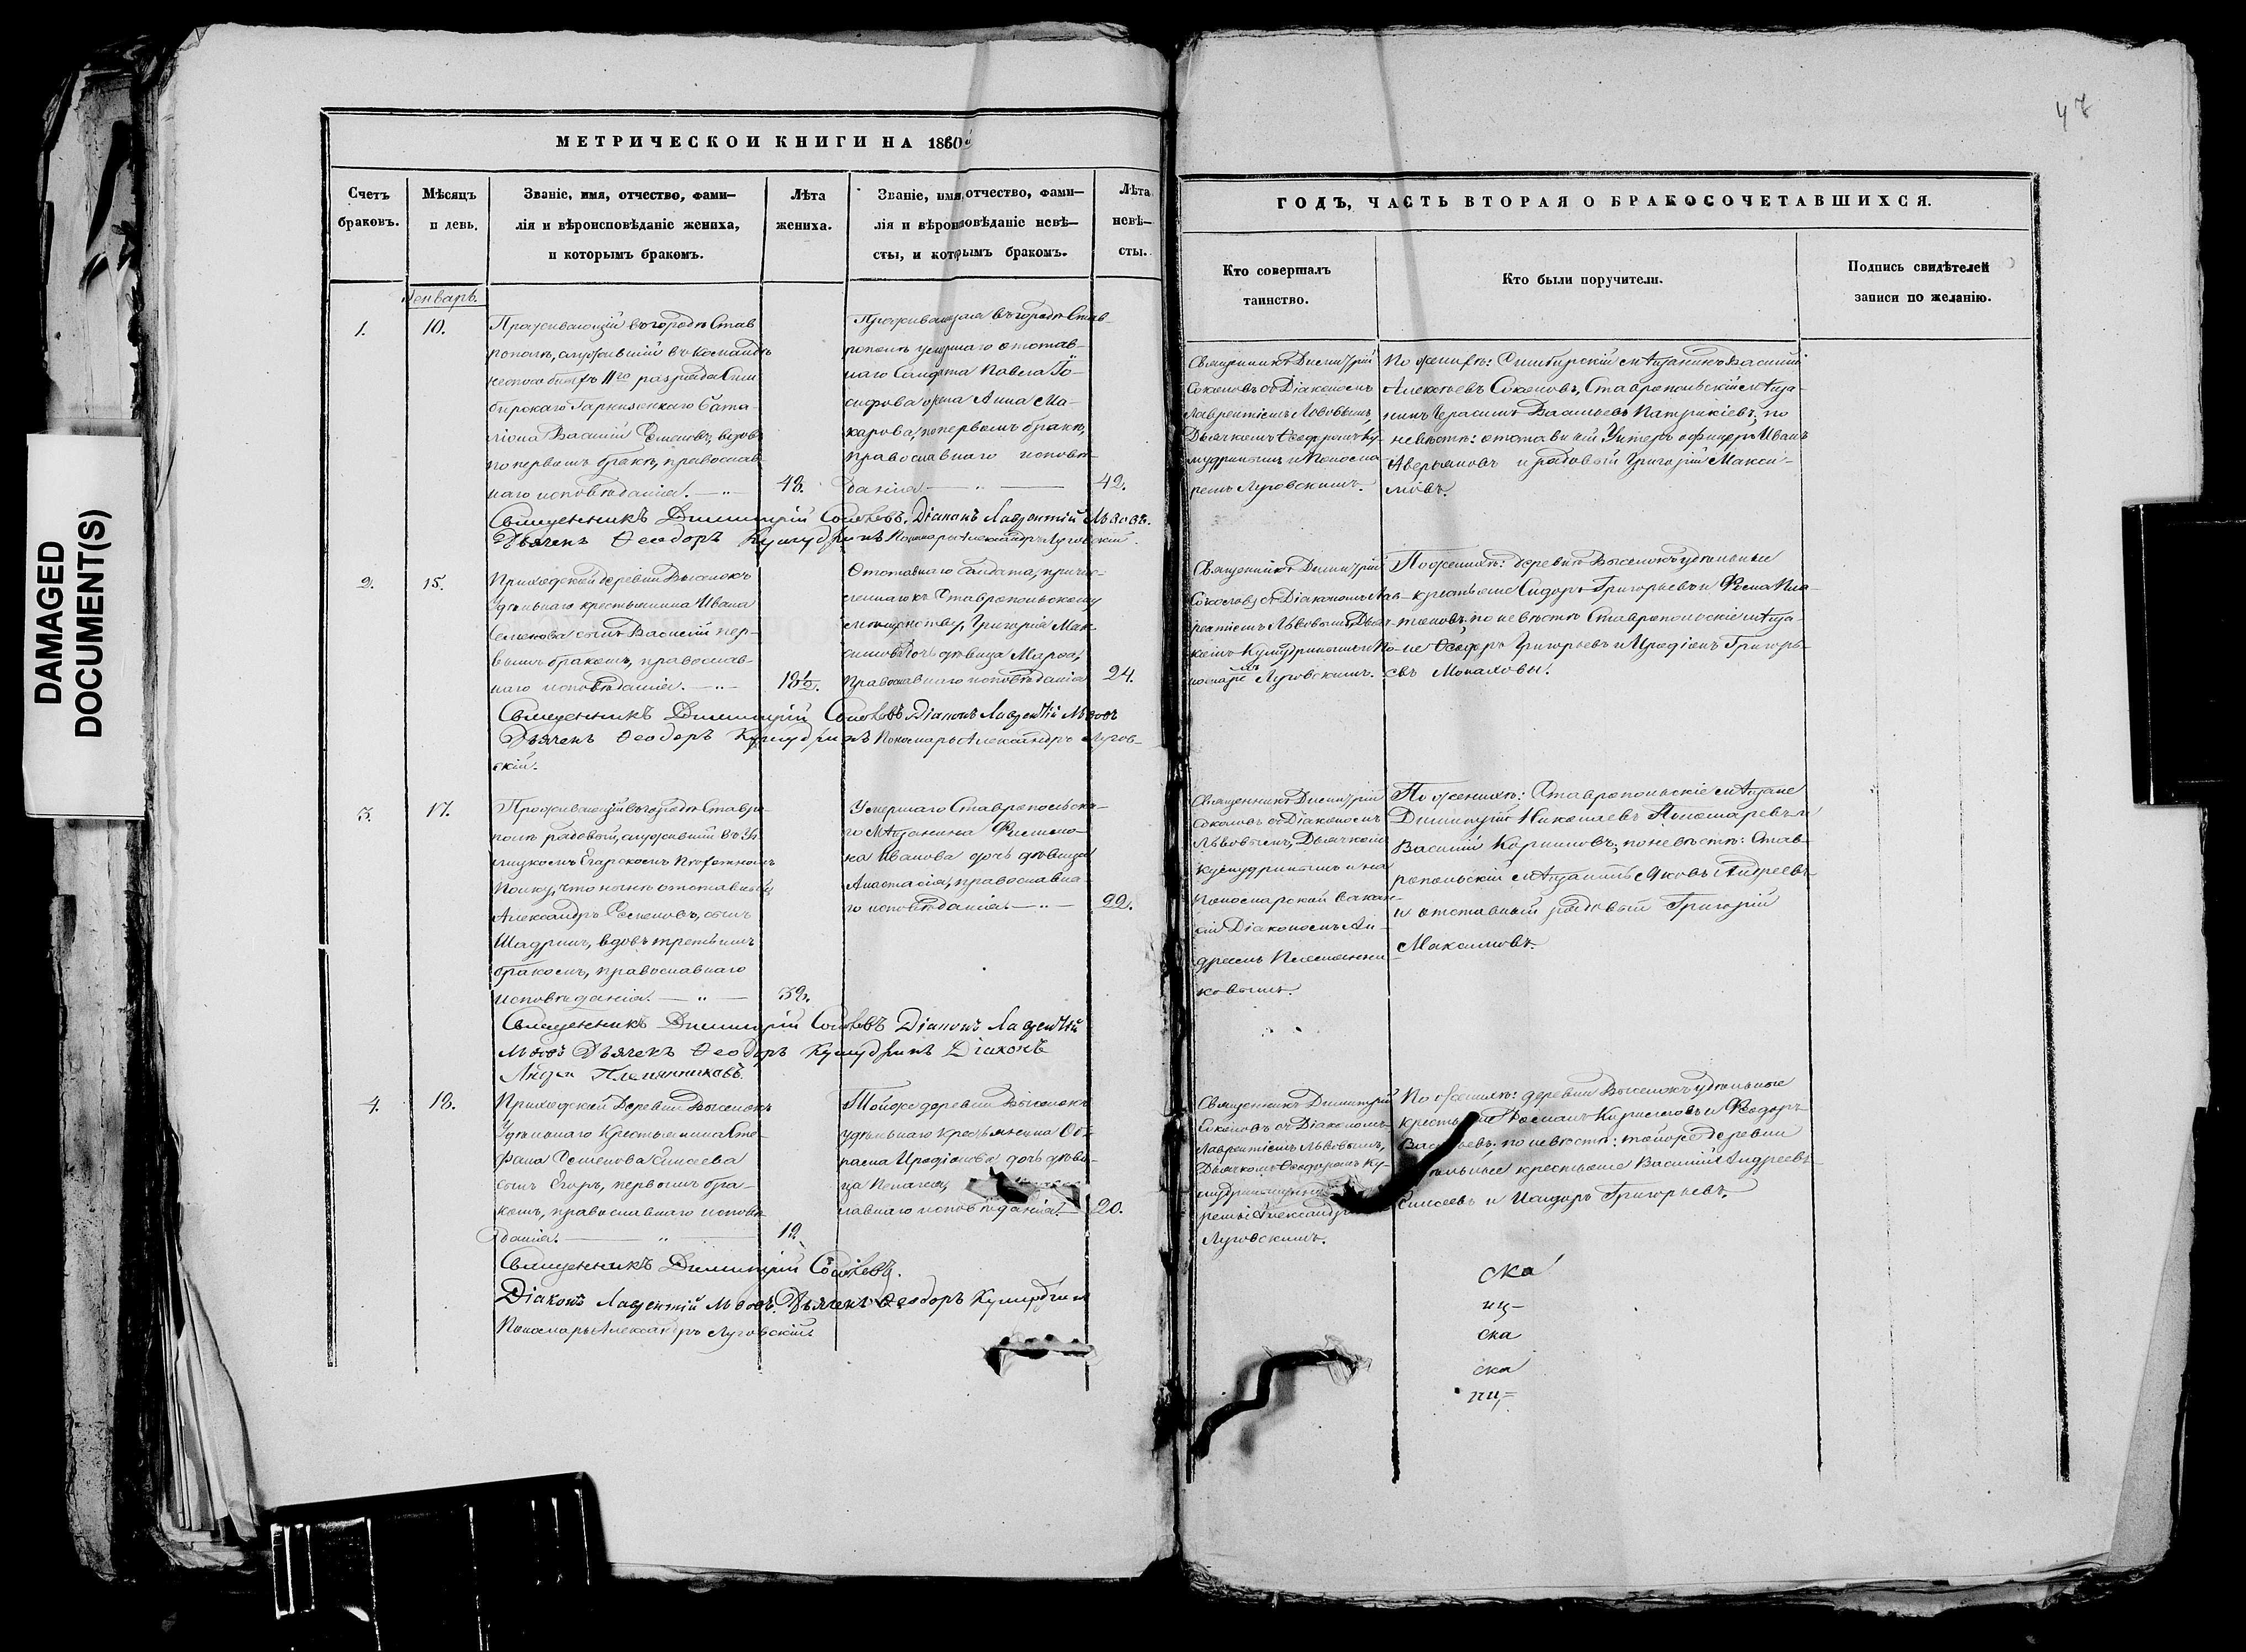 DAMAGED
DOCUMENT(S)
47
МЕТРИЧЕСКОЙ КНИГИ НА 1860
Счетъ
браковъ.
Мѣсяцъ
и день.
Званіе, имя, отчество, фами—
лія и вѣроисповѣданіе жениха,
и которымъ бракомъ.
Лѣта
жениха.
Званіе, имя, отчество, фами—
лія и вѣроисповѣданіе невѣ—
сты, и которымъ бракомъ.
Лѣта
невѣ—
сты.
Генварь.
1.
10.
Проживающій въ городѣ Став
рополѣ, служившій въ командѣ
неспособныхъ 11го разряда Сим
бирскаго Гарнизоннаго бата-
ліона Василій Семеновъ, вдовъ
по первомъ бракѣ, православ
наго исповѣданія.
48.
Проживающая въ городѣ Став-
рополѣ умершаго отстав-
наго Солдата Павла Іо-
сифова жена Анна Ма-
карова, по первомъ бракѣ,
православнаго исповѣ-
данія
42.
Священникъ Димитрій Соколовъ. Діаконъ Лаврентій Львовъ.
Дьячекъ Ѳеодоръ Кумудринъ Пономарь Александръ Луговскій.
2.
15.
Приходской деревни Выселокъ
Удѣльнаго крестьянина Ивана
Семенова сынъ Василій пер-
вымъ бракомъ, православ-
наго исповѣданія.
18½.
Отставнаго Солдата, причис-
леннаго къ Ставропольскому
мѣщанству, Григорія Мак
симова дочь дѣвица Марѳа,
Православнаго исповѣданія
24.
Священникъ Димитрій Соколовъ Діаконъ Лаврентій Львовъ
Дьячекъ Ѳеодоръ Кумудринъ Пономарь Александръ Лугов-
скій.
3.
17.
Проживающій въ городѣ Ставро-
полѣ рядовой, служившій въ
Егарскомъ Пѣхотномъ
Полку, что нынѣ отставный
Александръ Семеновъ, сынъ
Шадринъ, вдовъ третьимъ
бракомъ, православнаго
исповѣданія.
39.
Умершаго Ставропольска-
го Мѣщанина Филимо-
на Иванова дочь дѣвица
Анастасія, православна-
го исповѣданія.
22.
Священникъ Димитрій Соколовъ Діаконъ Лаврентій
Львовъ Дьячекъ Ѳеодоръ Кумудринъ Діаконъ
Андрей Племянниковъ.
4.
18.
Приходской Деревни Выселокъ
Удѣльнаго Крестьянина Сте-
фана Семенова Елисеева
сынъ Егоръ, первымъ бра-
комъ, православнаго исповѣ
данія.
19.
Той же деревни Выселокъ
удѣльнаго крестьянина
Иродіонова дочь дѣви-
ца Пелагея,
лавнаго исповѣданія.
20.
Священникъ Димитрій Соколовъ.
Діаконъ Лаврентій Львовъ. Дьячекъ Ѳеодоръ Кумудринъ
Пономарь Александръ Луговскій
ГОДЪ, ЧАСТЬ ВТОРАЯ О БРАКОСОЧЕТАВШИХСЯ.
Кто совершалъ
таинство.
Кто были поручители.
Подпись свидѣтелей
записи по желанію.
Священникъ Димитрій
Соколовъ съ Діакономъ
Лаврентіемъ Львовымъ,
Дьячкомъ Ѳеодоромъ Ку-
мудринымъ и Понома-
ремъ Луговскимъ.
По женихѣ: Симбирскій мѣщанинъ Василій
Алексѣевъ Соколовъ, Ставропольскій мѣща-
нинъ Герасимъ Васильевъ Патрикіевъ; по
невѣстѣ: отставный Унтеръ офицеръ Иванъ
Аверьяновъ и рядовой Григорій Макси-
мовъ.
Священникъ Димитрій
Соколовъ съ Діакономъ Лав-
рентіемъ Львовымъ, Дьяч-
комъ Кумудринымъ и По-
номаремъ Луговскимъ.
По женихѣ: деревни Выселокъ удѣльные
крестьяне Сидоръ Григорьевъ и Ѳома Пла-
тоновъ; по невѣстѣ Ставропольскіе мѣща-
не Ѳеодоръ Григорьевъ и Иродіонъ Григорь-
евъ Монаховы.
Священникъ Димитрій
Соколовъ съ Діакономъ
Львовымъ, Дьячкомъ
Кумудринымъ и на
Пономарской вакан-
сіи Діакономъ Ан-
дреемъ Племянни-
ковымъ.
По женихѣ: Ставропольскіе мѣщане
Димитрій Николаевъ Пономаревъ и
Василій Карповъ; по невѣстѣ: Став-
ропольскій мѣщанинъ Яковъ Андреевъ
и отставный рядовой Григорій
Максимовъ.
Священникъ Димитрій
Соколовъ съ Діакономъ
Лаврентіемъ Львовымъ,
Дьячкомъ Ѳеодоромъ Ку-
мудринымъ
ремъ Александр
Луговскимъ.
По женихѣ: деревни Выселокъ удѣльные
кресть Романъ Кириловъ и Ѳеодоръ
Васильевъ; по невѣстѣ: той же деревни
крестьяне Василій Андреевъ
Елисеевъ и Исидоръ Григорьевъ.
ска
иц-
ска
ска
нц-